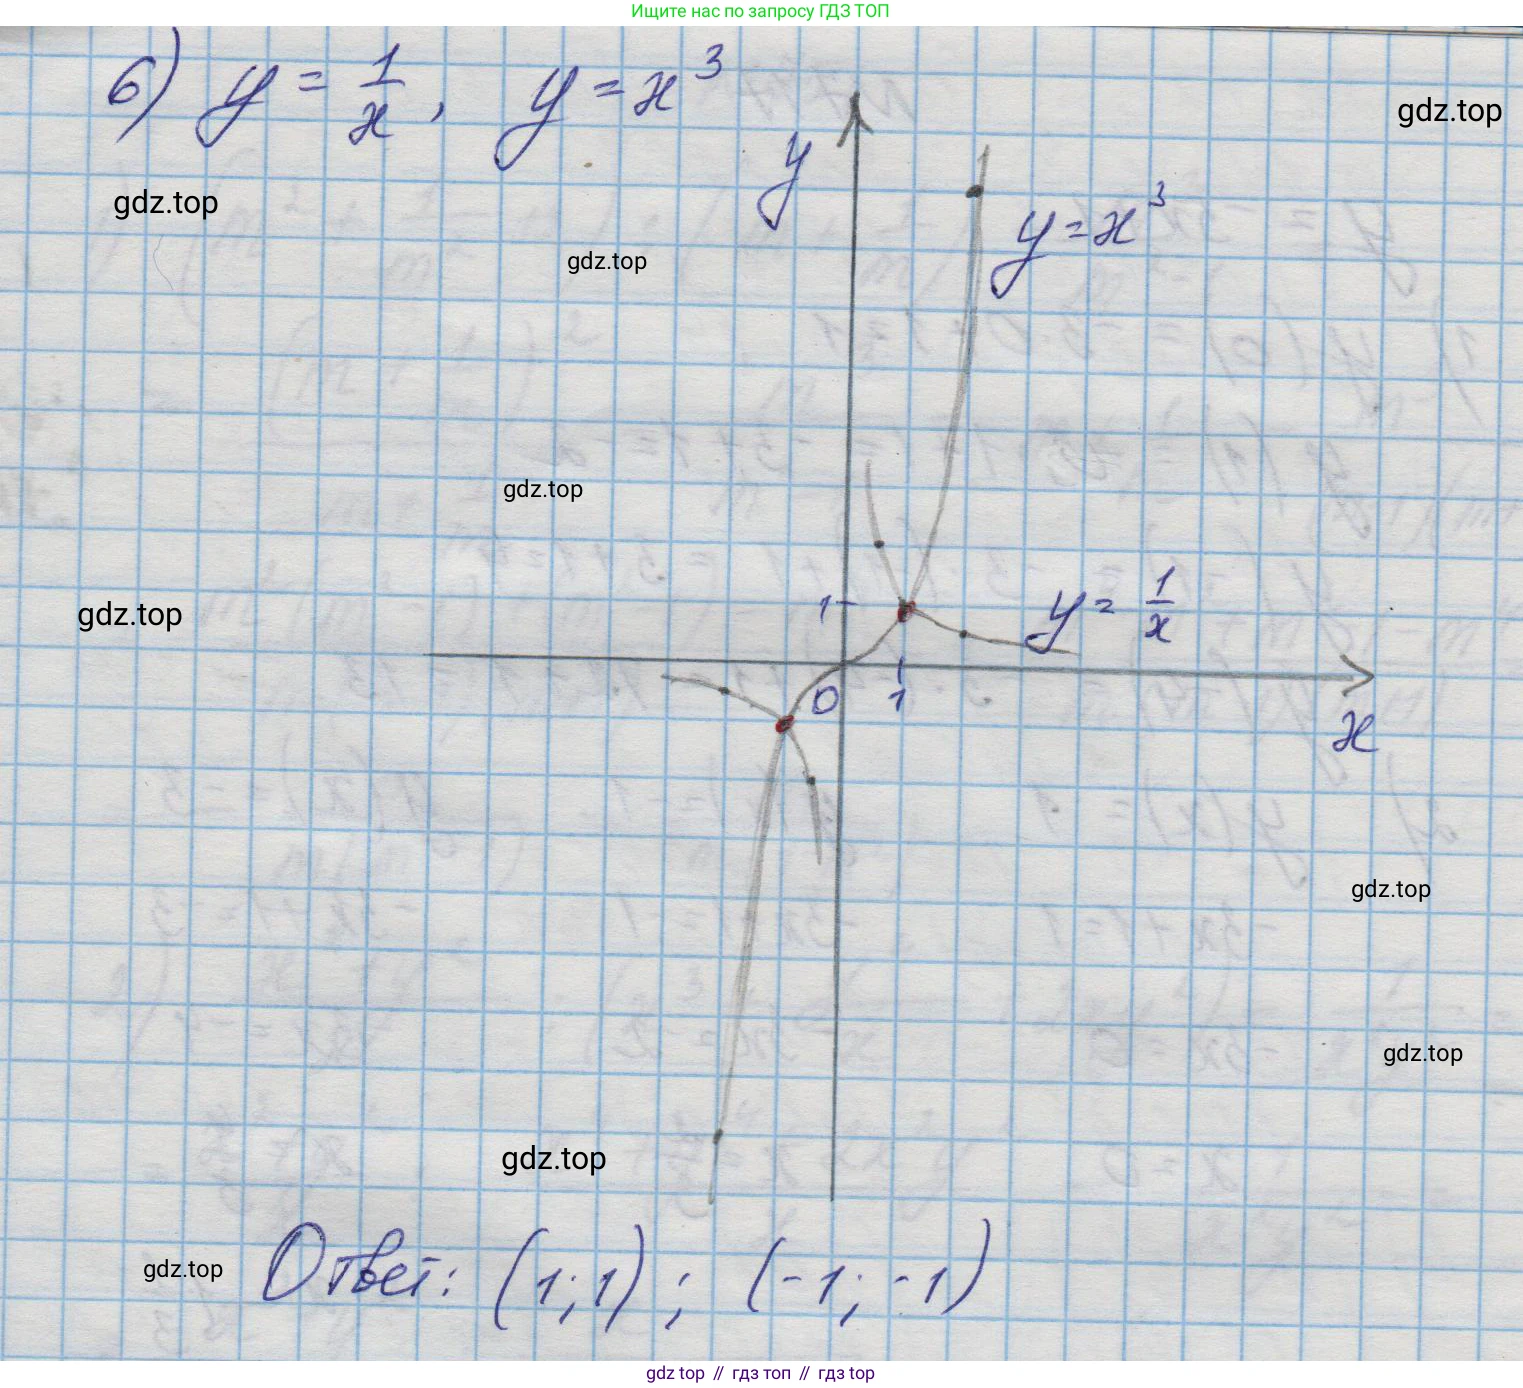 Ищите нас по запросу ГДЗ ТОП
6) y = 1/x, y = x³
gdz.top
y
gdz.top
y = x³
gdz.top
gdz.top
1
y = 1/x
gdz.top
0
1
x
gdz.top
gdz.top
gdz.top
gdz.top
Ответ: (1; 1); (-1; -1)
gdz.top // гдз топ // гдз top